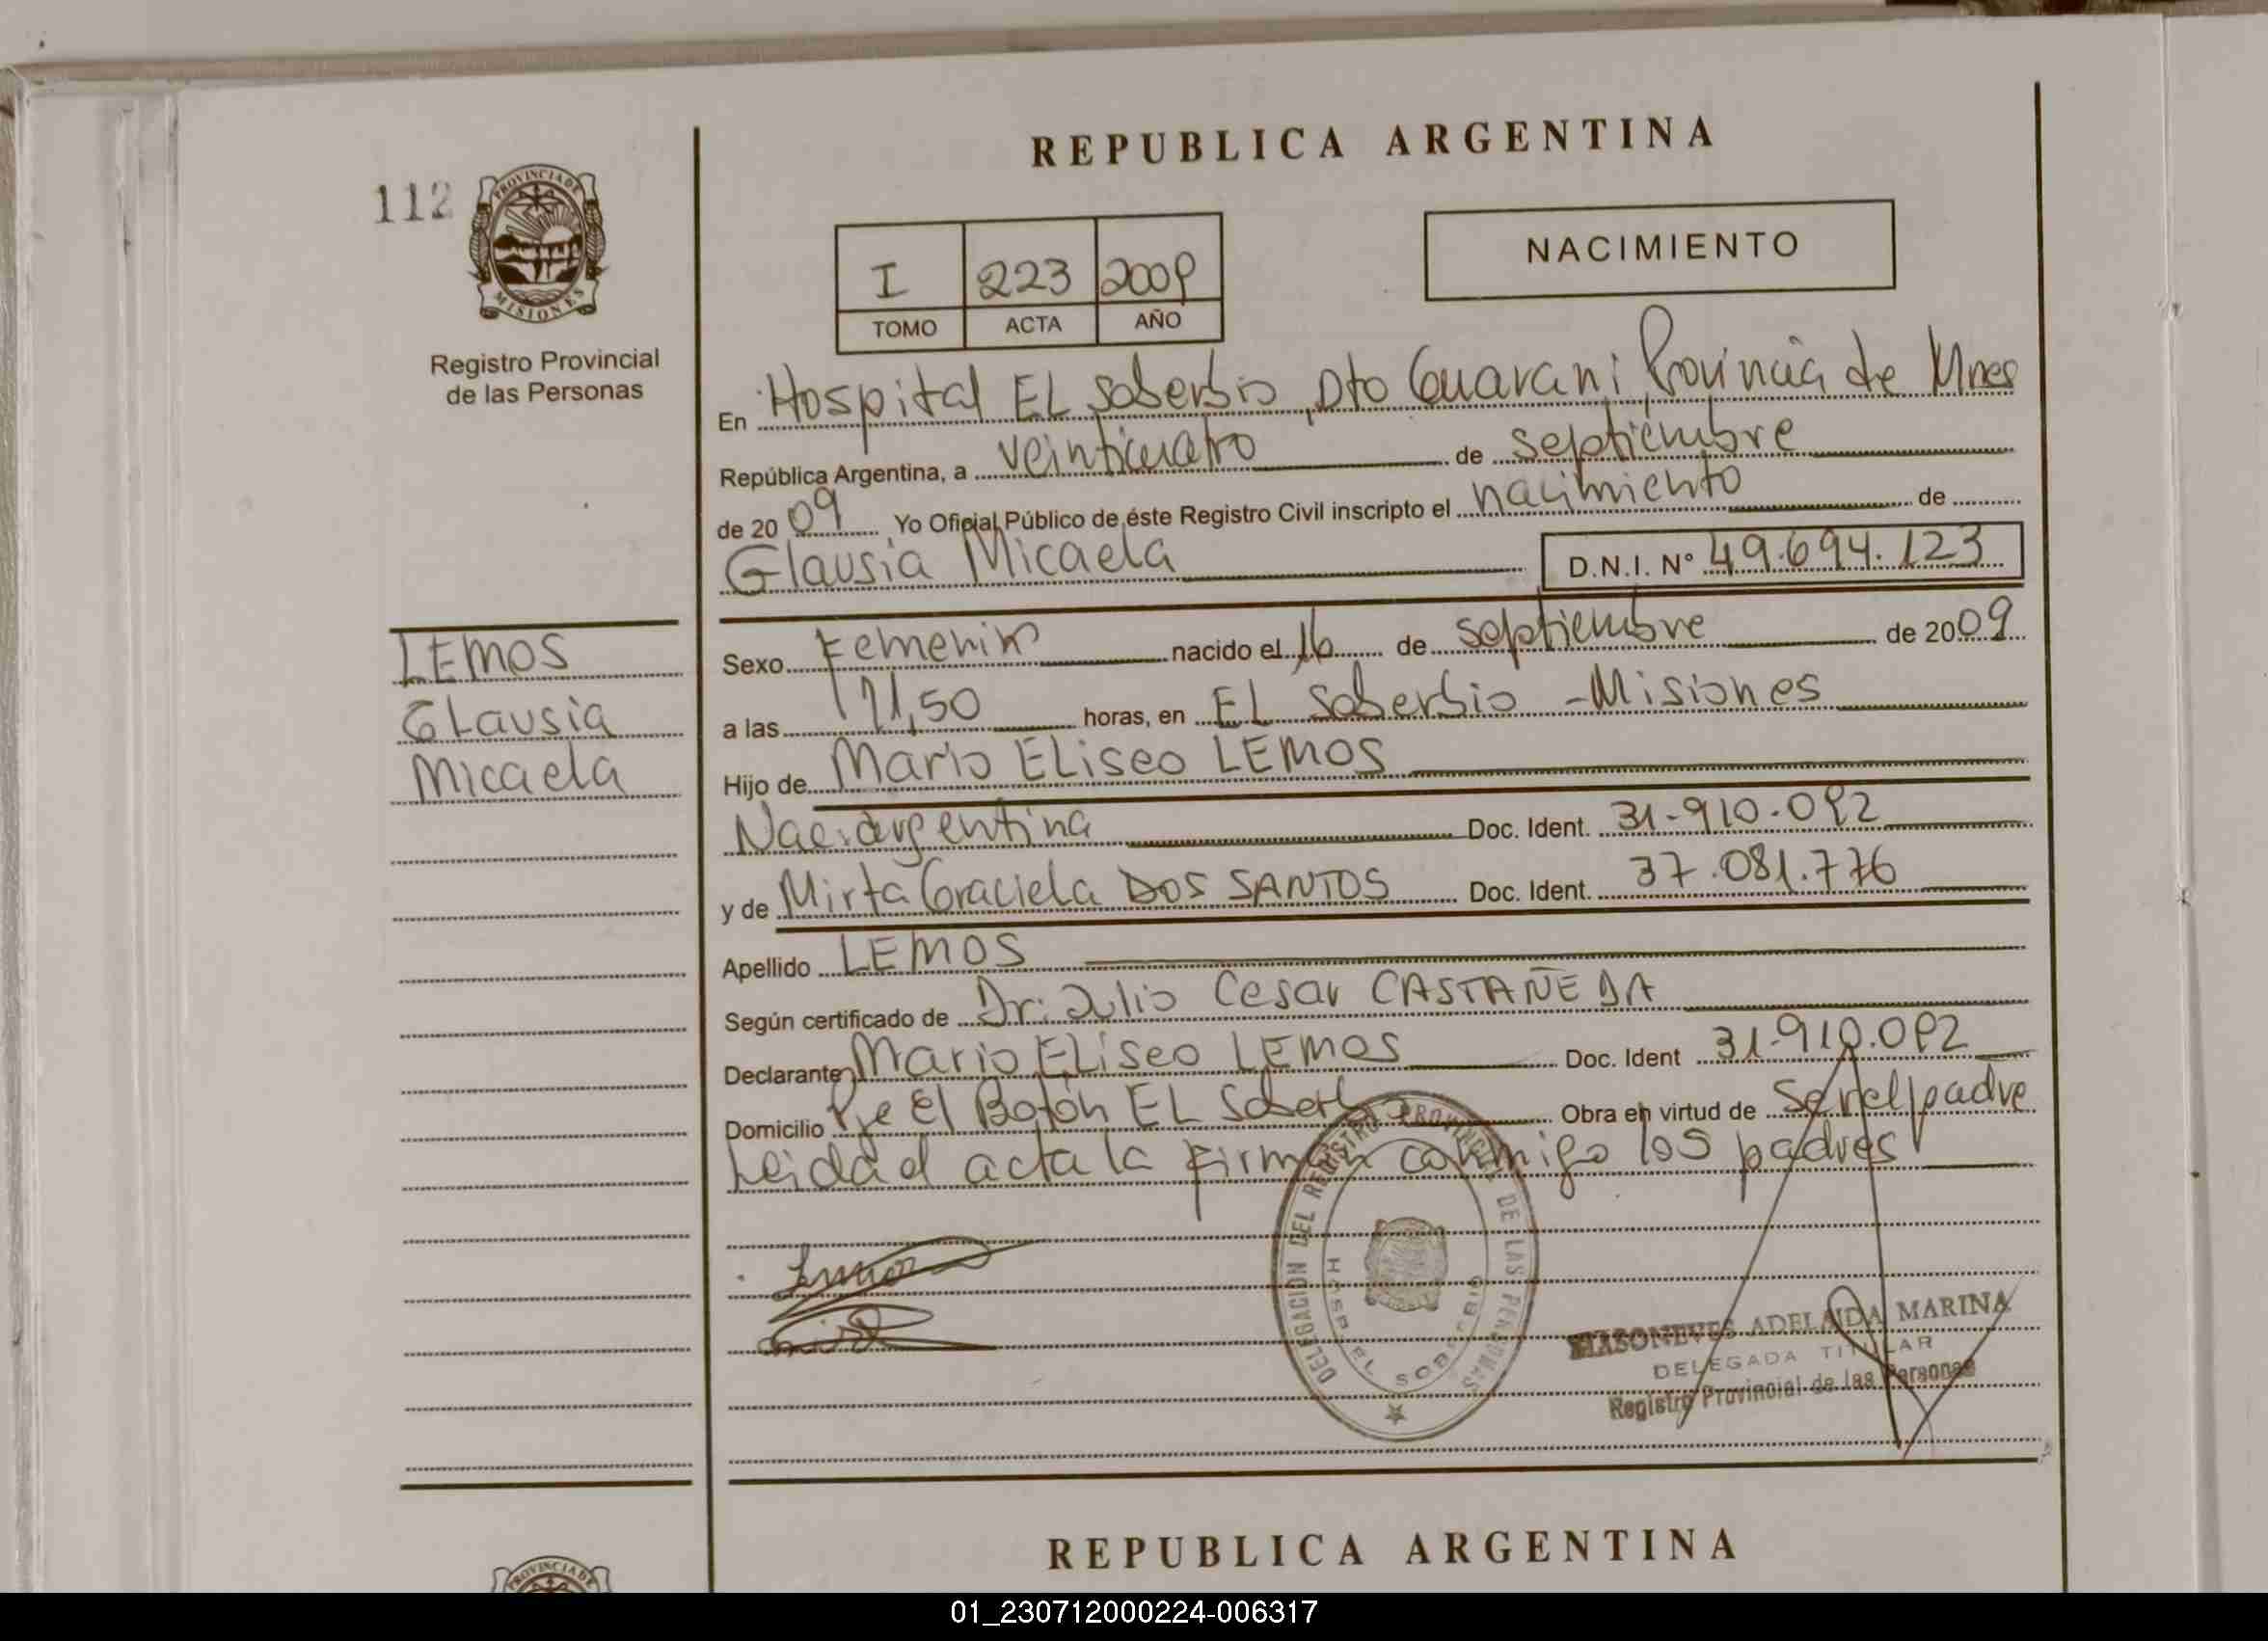 REPUBLICA ARGENTINA
112
PROVINCIA DE
MISIONES
Registro Provincial
de las Personas
I 223 2009
TOMO ACTA AÑO
NACIMIENTO
En Hospital EL Soberbio, Dto Guarani, Provincia de Mnes
República Argentina, a veinticuatro de septiembre
de 2009 Yo Oficial Público de éste Registro Civil inscripto el nacimiento de
Glausia Micaela D.N.I. Nº 49.694.123
LEMOS
Glausia
Micaela
Sexo Femenino nacido el 16 de septiembre de 2009
a las 21,50 horas, en EL Soberbio - Misiones
Hijo de Mario ELiseo LEMOS
Nac. argentina Doc. Ident. 31-910-092
y de Mirta Graciela DOS SANTOS Doc. Ident. 37.081.776
Apellido LEMOS
Según certificado de Dr: Julio Cesar CASTAÑEDA
Declarante Mario ELiseo LEMOS Doc. Ident 31-910.092
Domicilio Pje El Botón EL Soberbio Obra en virtud de ser el padre
Leida el acta la firman conmigo los padres
DELEGACION DEL REGISTRO PROVINCIAL DE LAS PERSONAS
HOSP. EL SOBERBIO
ADELAIDA MARINA
DELEGADA TITULAR
Registro Provincial de las Personas
REPUBLICA ARGENTINA
PROVINCIA DE
01_230712000224-006317